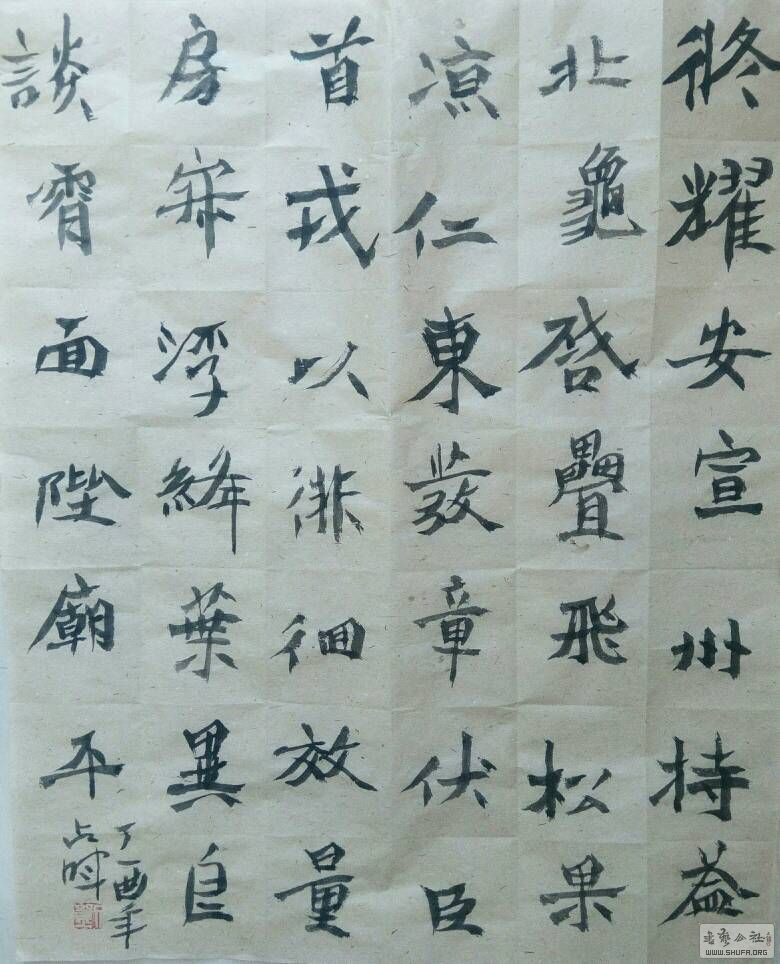 終耀安宣州持蓋
北龜啓疊飛松果
凉仁東發章伏臣
首戎以徘徊放量
房寐浮絳葉異自
談霄面陛廟平
丁酉年
書藝公社
WWW.SHUFA.ORG